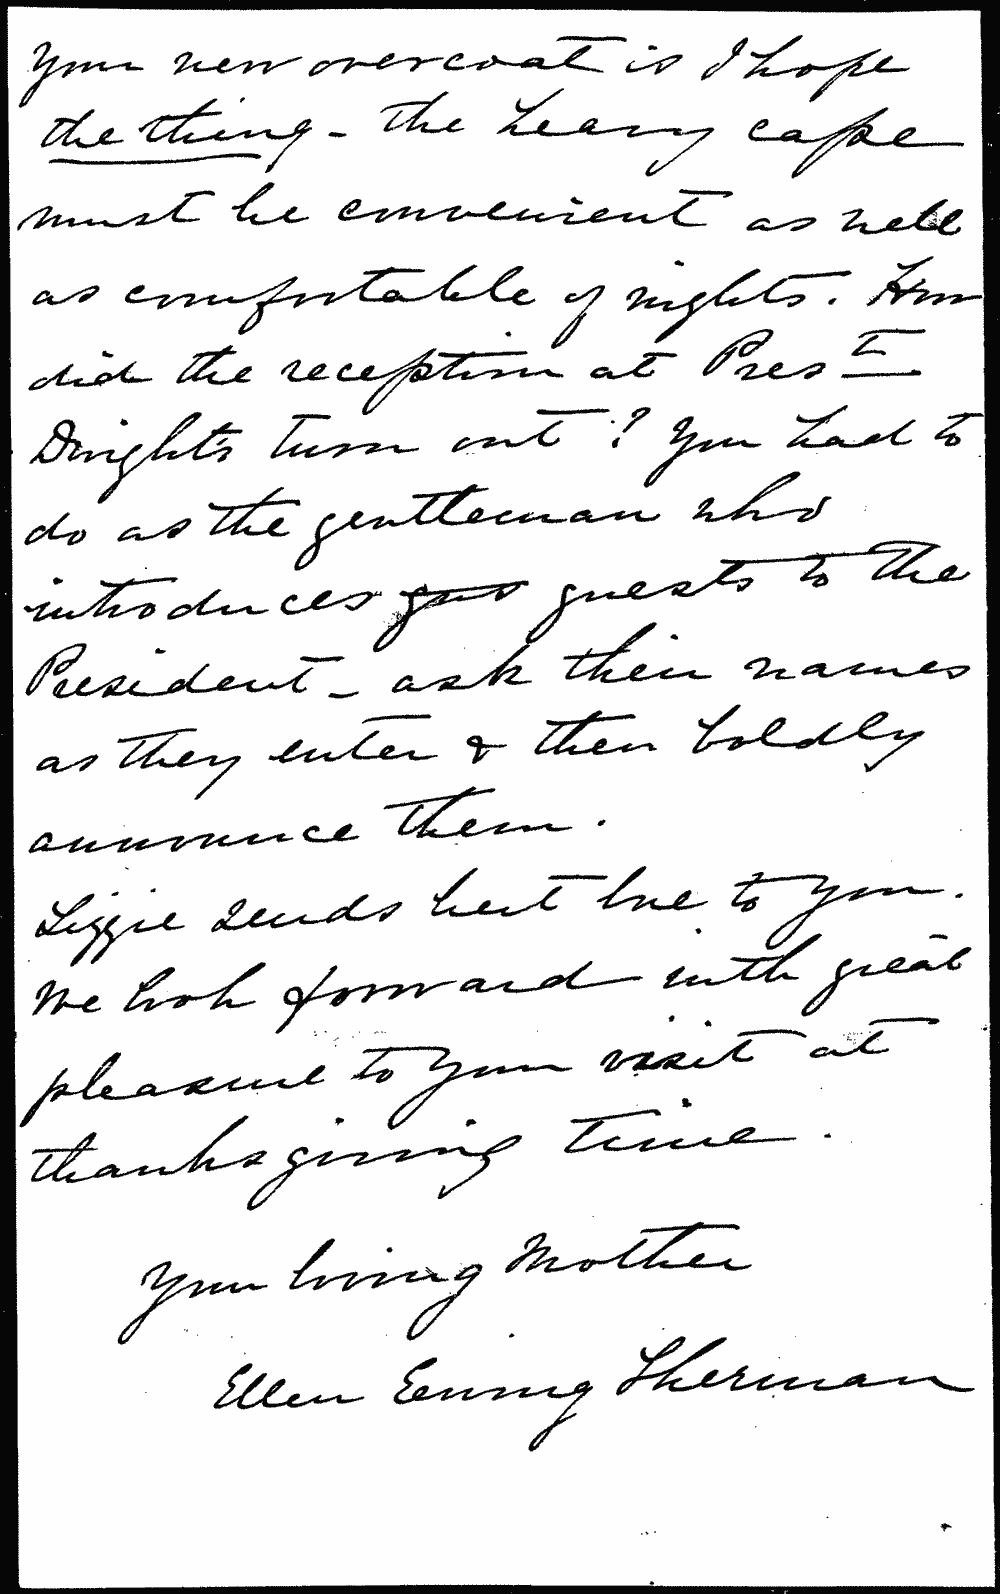 Your new overcoat is I hope
the thing - the heavy cape
must be convenient as well
as comfortable of nights. How
did the reception at Pres t
Dwight's turn out? You had to
do as the gentleman who
introduces gus guests to the
President - ask their names
as they enter & then boldly
announce them.
Lizzie sends best love to you.
We look forward with great
pleasure to your visit at
thanksgiving time.
Your loving Mother
Ellen Ewing Sherman